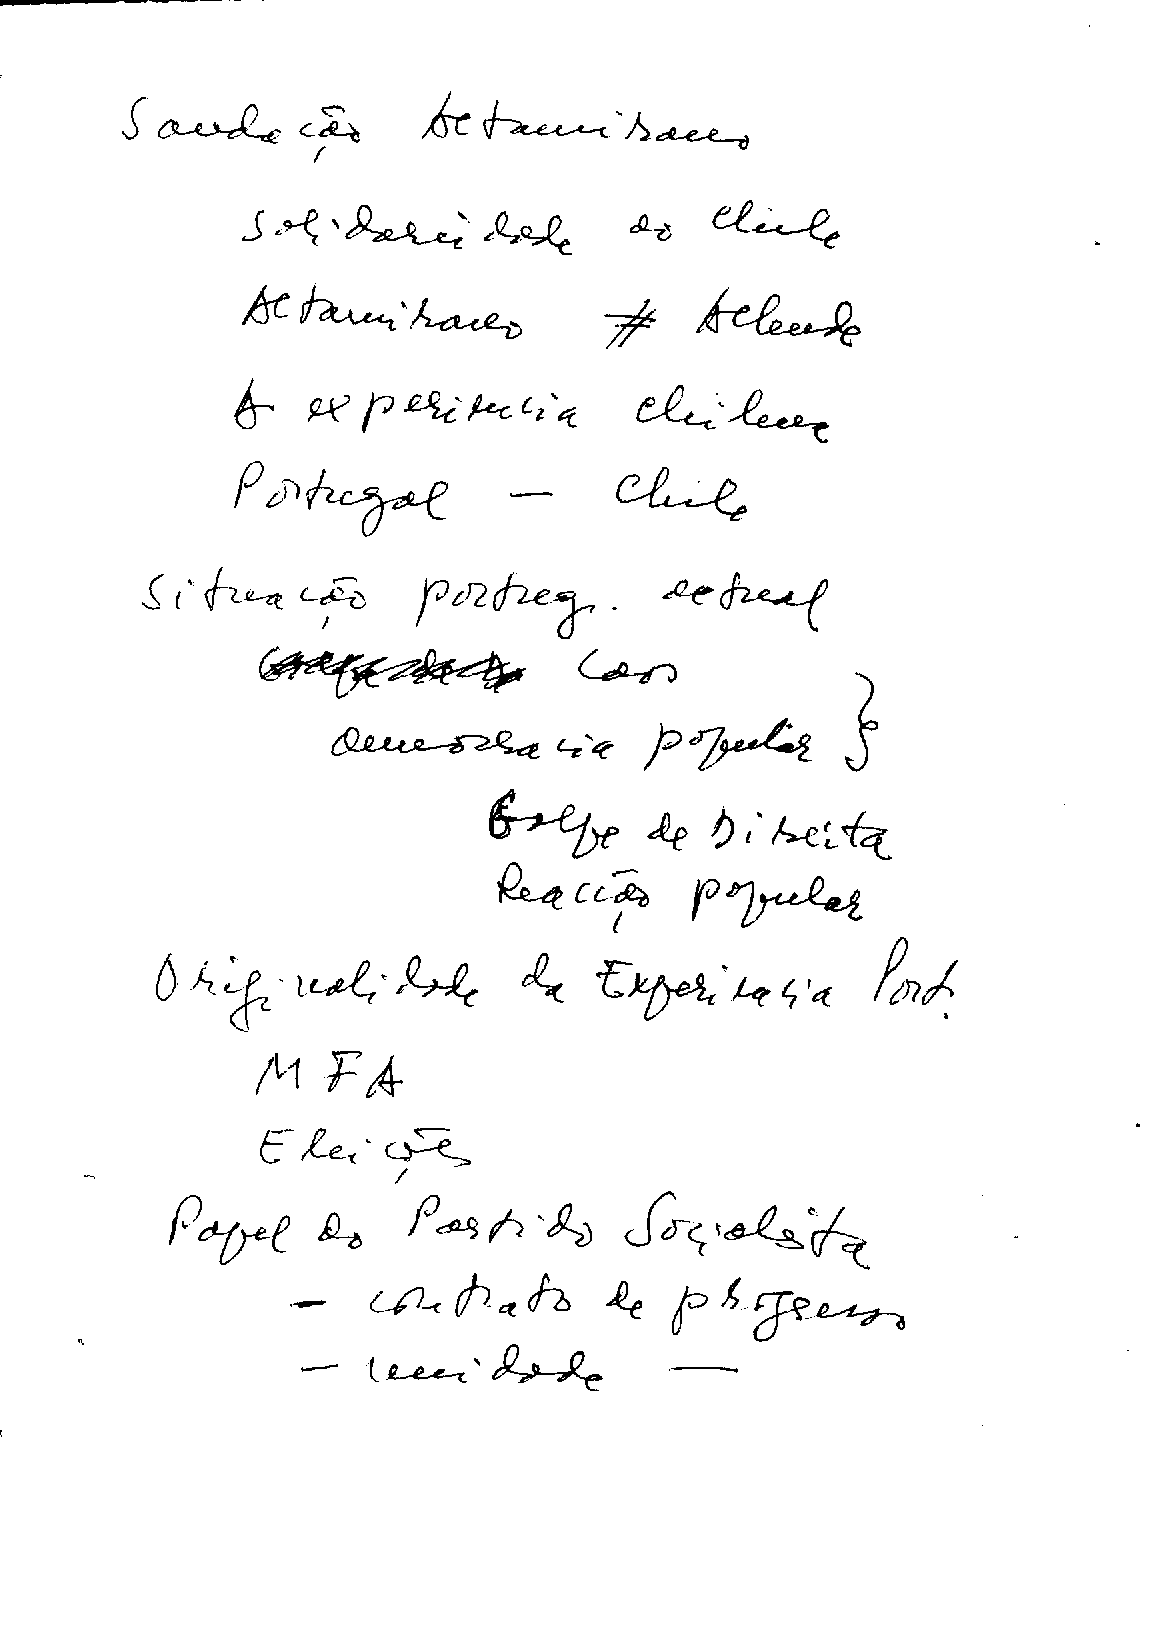 Saudação Altamirano
Solidariedade ao Chile
Altamirano # Allende
A experiência chilena
Portugal — Chile
Situação portug. actual
Caos
democracia popular }
Golpe de Direita
Reacção popular
Originalidade da Experiência Port.
MFA
Eleições
Papel do Partido Socialista
- contrato de progresso
- unidade —